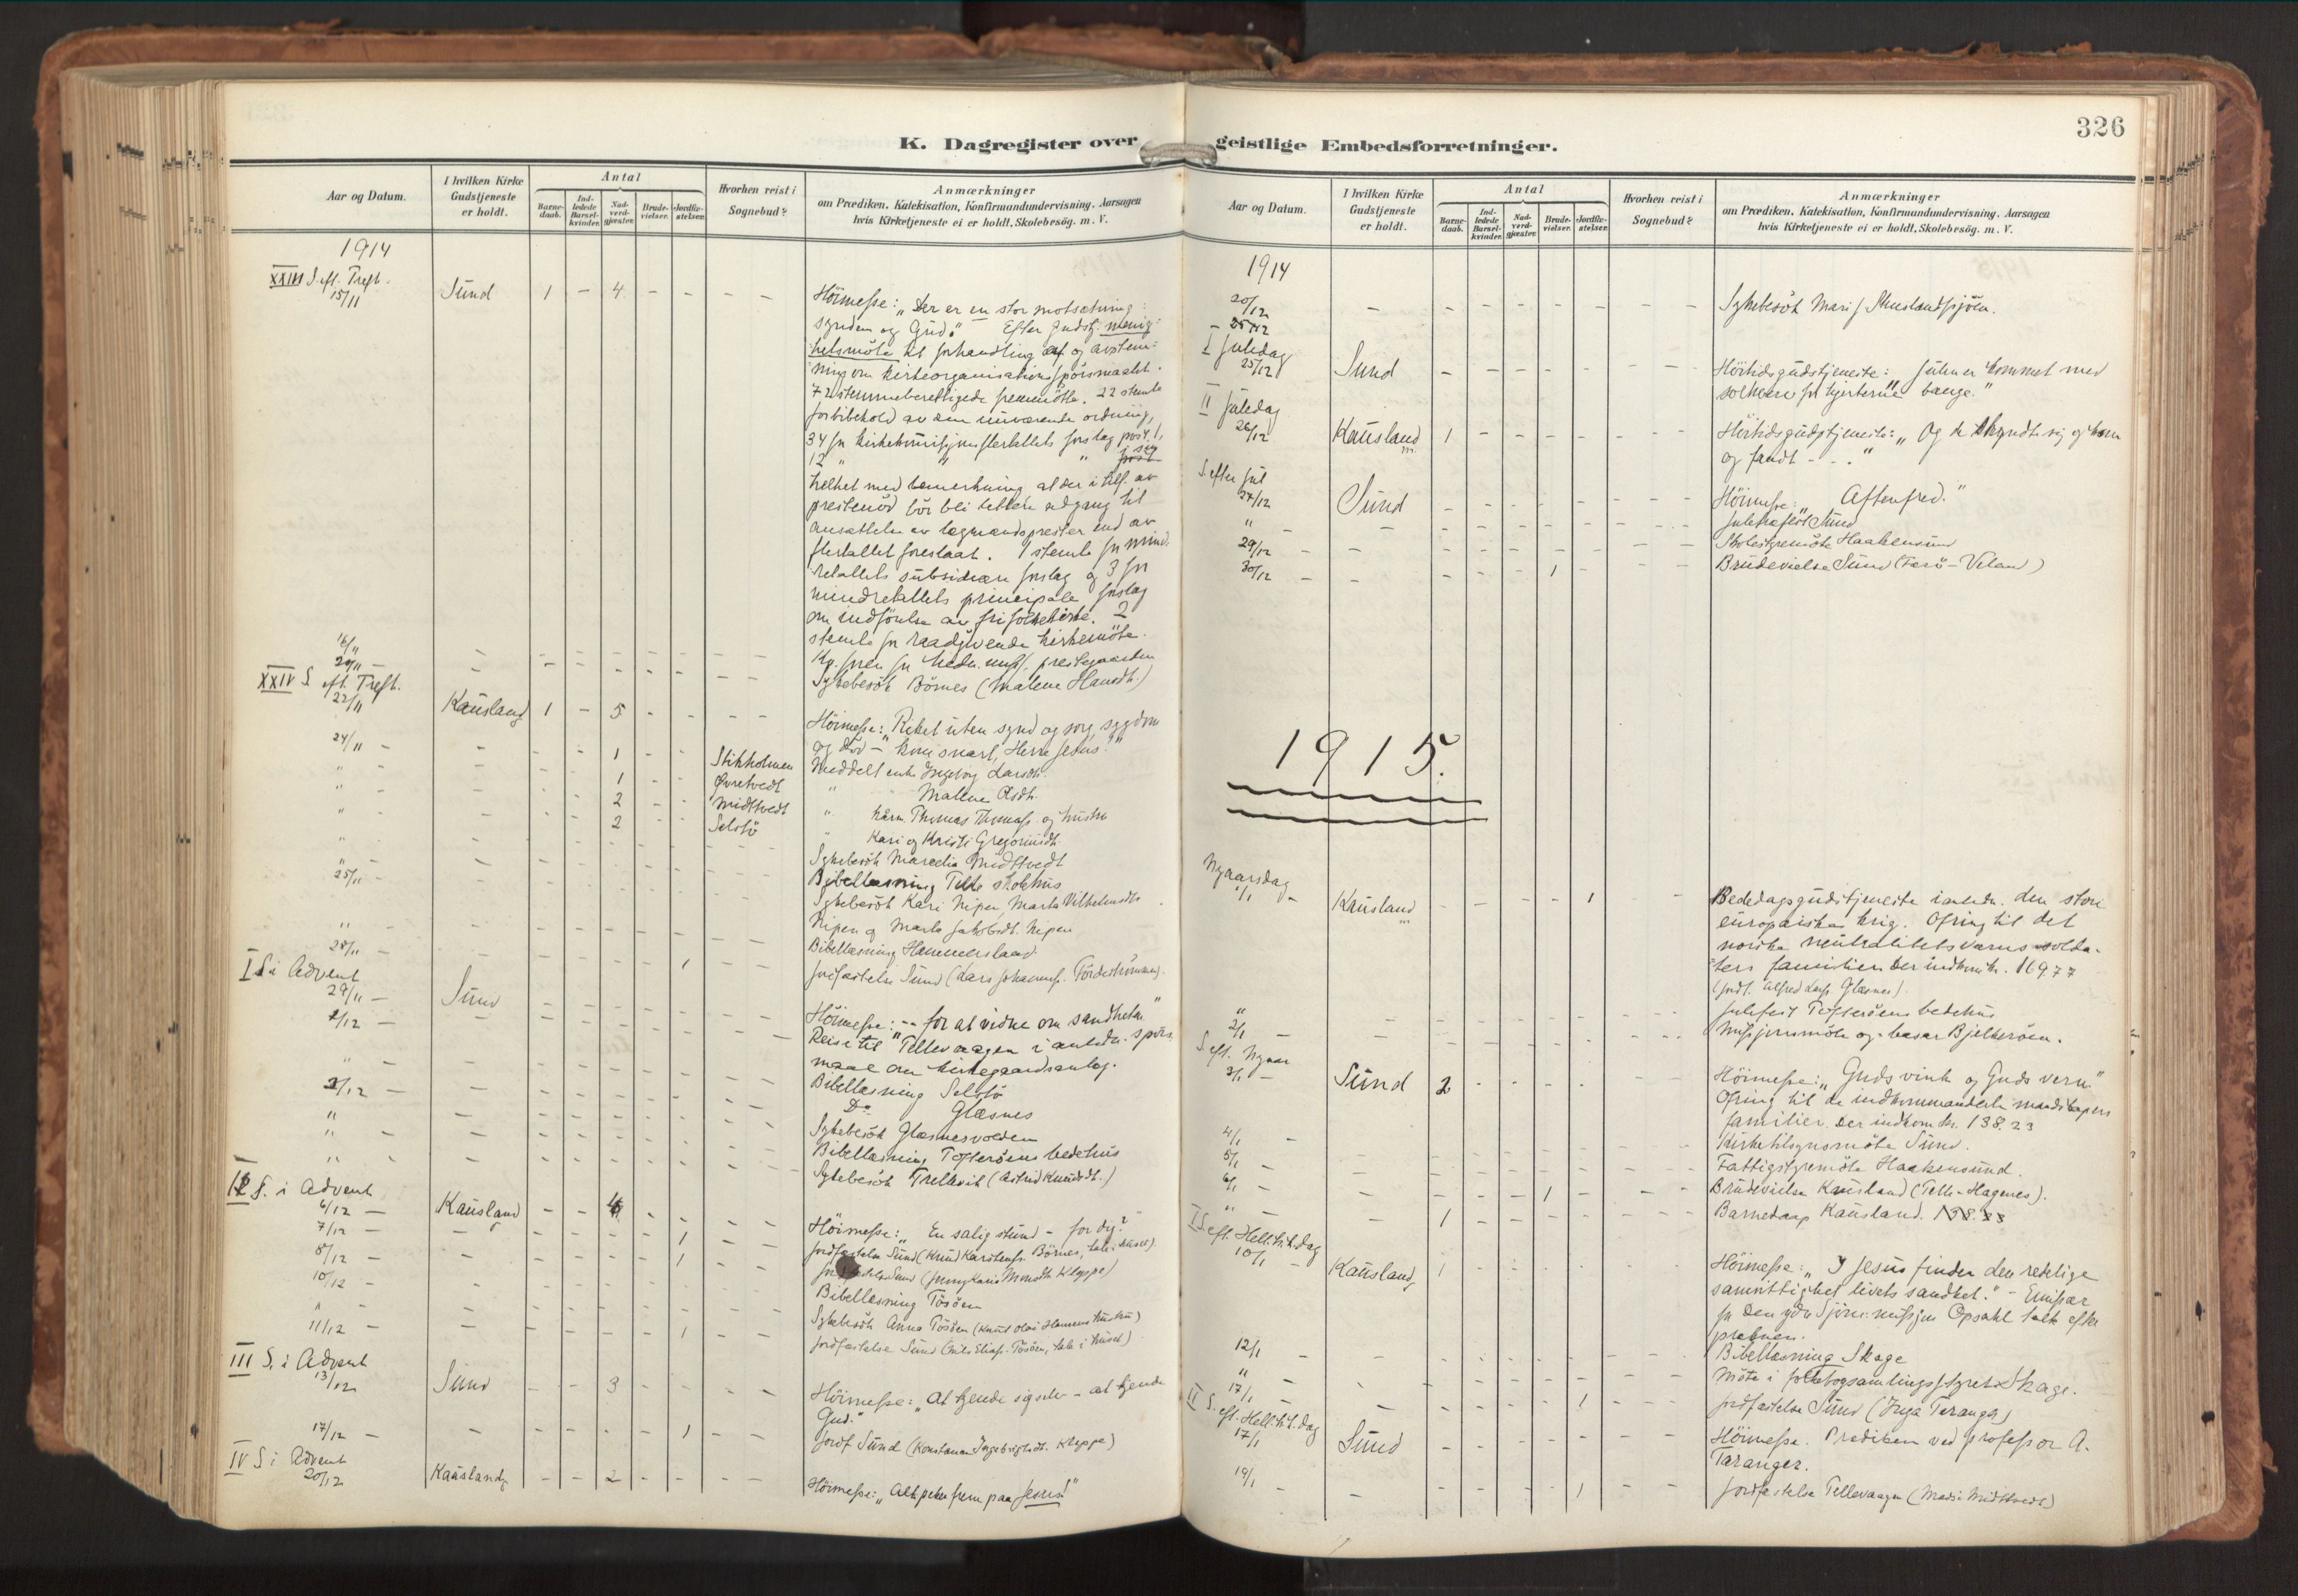 326
K. Dagregister over geistlige Embedsforretninger.
Aar og Datum.
I hvilken Kirke Gudstjeneste er holdt.
Antal
Barne-daab.
Ind-ledede Barsel-kvinder.
Nad-verd-gjæster.
Brude-vielser.
Jordfæ-stelser.
Hvorhen reist i Sognebud?
Anmærkninger
om Prædiken, Katekisation, Konfirmandundervisning, Aarsagen
hvis Kirketjeneste ei er holdt, Skolebesög. m. V.
1914
XXIII S. eft. Trefh.
15/11 Sund 1 - 4 - - - -
Höimesse: „Der er en stor motsætning:
synden og Gud." Efter Gudstj. menig-
hetsmöte til forhandling af og avstem-
ning om kirkeorganisationsspörsmaalet.
72 stemmeberettigede fremmötte. 22 stemte
for bibehold av den nuværende ordning,
34 for kirkekommissjonsflertallets forslag post 1,
12 " " " i sin
helhet med bemerkning at der i tilf. av
prestenöd bör bli lettere adgang til
ansættelse av lægmandsprester end av
flertallet foreslaat. 1 stemte for mind-
retallets subsidiære forslag og 3 for
mindretallets principale forslag
om indförelse av fri folkekirke. 2
stemte for raadgivende kirkemöte.
16/11 - - - - - - - -
Kv. foren for hedn. miss. prestegaarden
20/11 - - - - - - -
Sykebesök Börnes (Malene Hansdt.)
XXIV S. eft. Trefh.
22/11 Kausland 1 - 5 - - - -
Höimesse: „Riket uten synd og sorg, sygdom
og död – kom snart, Herre Jesus!"
24/11 - - - - 1 - - Stikholmen Meddelt enke Ingeborg Larsdt.
" - - - 1 - - Övretvedt " Malene Olsdt.
" - - - 2 - - Midttvedt " kårm. Thomas Thomass. og hustru
" - - - 2 - - Selstö " Kari og Kristi Gregoriusdt.
" - Sykebesök Marcelia Midttvedt
" - Bibellæsning Telle skolehus
25/11 - Sykebesök Kari Nipen, Marta Vilhelmsdt.
Nipen og Marta Jakobsdt. Nipen
" - Bibellæsning Hammersland
28/11 - 1 - Jordfæstelse Sund (Lars Johanness. Förde)
I S. i Advent
29/11 - Sund
Höimesse: „-- for at vidne om sandheten"
2/12 - Reise til Tellevaagen i anledn. spörs-
maal om kirkegaardsanlæg.
" - Bibellæsning Selstö
3/12 - Do Glæsnes
" - Sykebesök Glæsnesvolden
" - Bibellæsning Tofteröens bedehus
" - Sykebesök Trellevik (Astrid Knudsdt.)
II S. i Advent
6/12 - Kausland - - 4 - - - -
Höimesse: „En salig stund – for dig?"
7/12 - 1 - Jordfæstelse Sund (Knud Karstens. Börnes, tale i huset).
8/12 - 1 - Jordfæstelse Sund (Jenny Karia Monsdt. Kleppe)
10/12 - Bibellæsning Tösöen
" - Sykebesök Anna Tösöen (Knut Olai Hansens hustru)
11/12 - 1 - Jordfæstelse Sund (Nils Eliass. Tösöen, tale i huset)
III S. i Advent
13/12 Sund - - 3 - - - -
Höimesse: „At kjende sig selv – at kjende
Gud."
17/12 - 1 - Jordf. Sund (Konstanse Ingebrigtsdt. Kleppe)
IV S. i Advent
20/12 Kausland - - 2 - - - -
Höimesse: „Alt peker frem paa Jesus!"
Aar og Datum.
I hvilken Kirke Gudstjeneste er holdt.
Antal
Barne-daab.
Ind-ledede Barsel-kvinder.
Nad-verd-gjæster.
Brude-vielser.
Jordfæ-stelser.
Hvorhen reist i Sognebud?
Anmærkninger
om Prædiken, Katekisation, Konfirmandundervisning, Aarsagen
hvis Kirketjeneste ei er holdt, Skolebesög. m. V.
1914
20/12 - Sykebesök Mari
I Juledag
25/12 Sund - - - - - - -
Höitidsgudstjeneste: „Julen er kommet med
solhverv for hjerterne bange."
II Juledag
26/12 Kausland 1 - - - - - -
Höitidsgudstjeneste: „Og de skyndte sig og kom
og fandt - - ."
S. efter Jul
27/12 Sund
Höimesse: „Aftenfred."
" - Juletræfest Sund
29/12 - Skolestyremöte Haakensund
30/12 - 1 - Brudevielse Sund (Terö–Veland)
1915.
Nyaarsdag
1/1 - Kausland - - - - 1 - -
Bededagsgudstjeneste i anledn. den store
europæiske krig. Ofring til det
norske neutralitetsværns solda-
ters familier. Der indkom kr. 169.77
(Jordf. Alfred Larss. Glæsnes).
" - Julefest Tofteröens bedehus
2/1 - Missjonsmöte og basar Bjelkeröen.
S. eft. Nyaar
3/1 - Sund 2 - - - - - -
Höimesse: „Guds vink og Guds vern."
Ofring til de indkommanderte mandskapers
familier. Der indkom kr. 138.23
4/1 - Kirketilsynsmöte Sund.
5/1 - Fattigstyremöte Haakensund.
6/1 - 1 - Brudevielse Kausland (Telle–Hagenes).
" - 1 - Barnedaap Kausland. 138.23
I S. eft. Hell. tr. k. dag
10/1 - Kausland 1
Höimesse: „I Jesus finder den redelige
samvittighet livets sandhet." – Emissær
for den indre Sjömissjon Opsahl talte efter
prekenen.
12/1 - Bibellæsning Skage
" - Möte i folkebogsamlingsstyret Skage.
17/1 - 1 - Jordfæstelse Sund (Inga Taranger)
II S. eft. Hell. tr. k. dag
17/1 Sund
Höimesse. Prædiken ved professor A.
Taranger.
19/1 - 1 - Jordfæstelse Tellevaagen (Madsi Midttvedt)